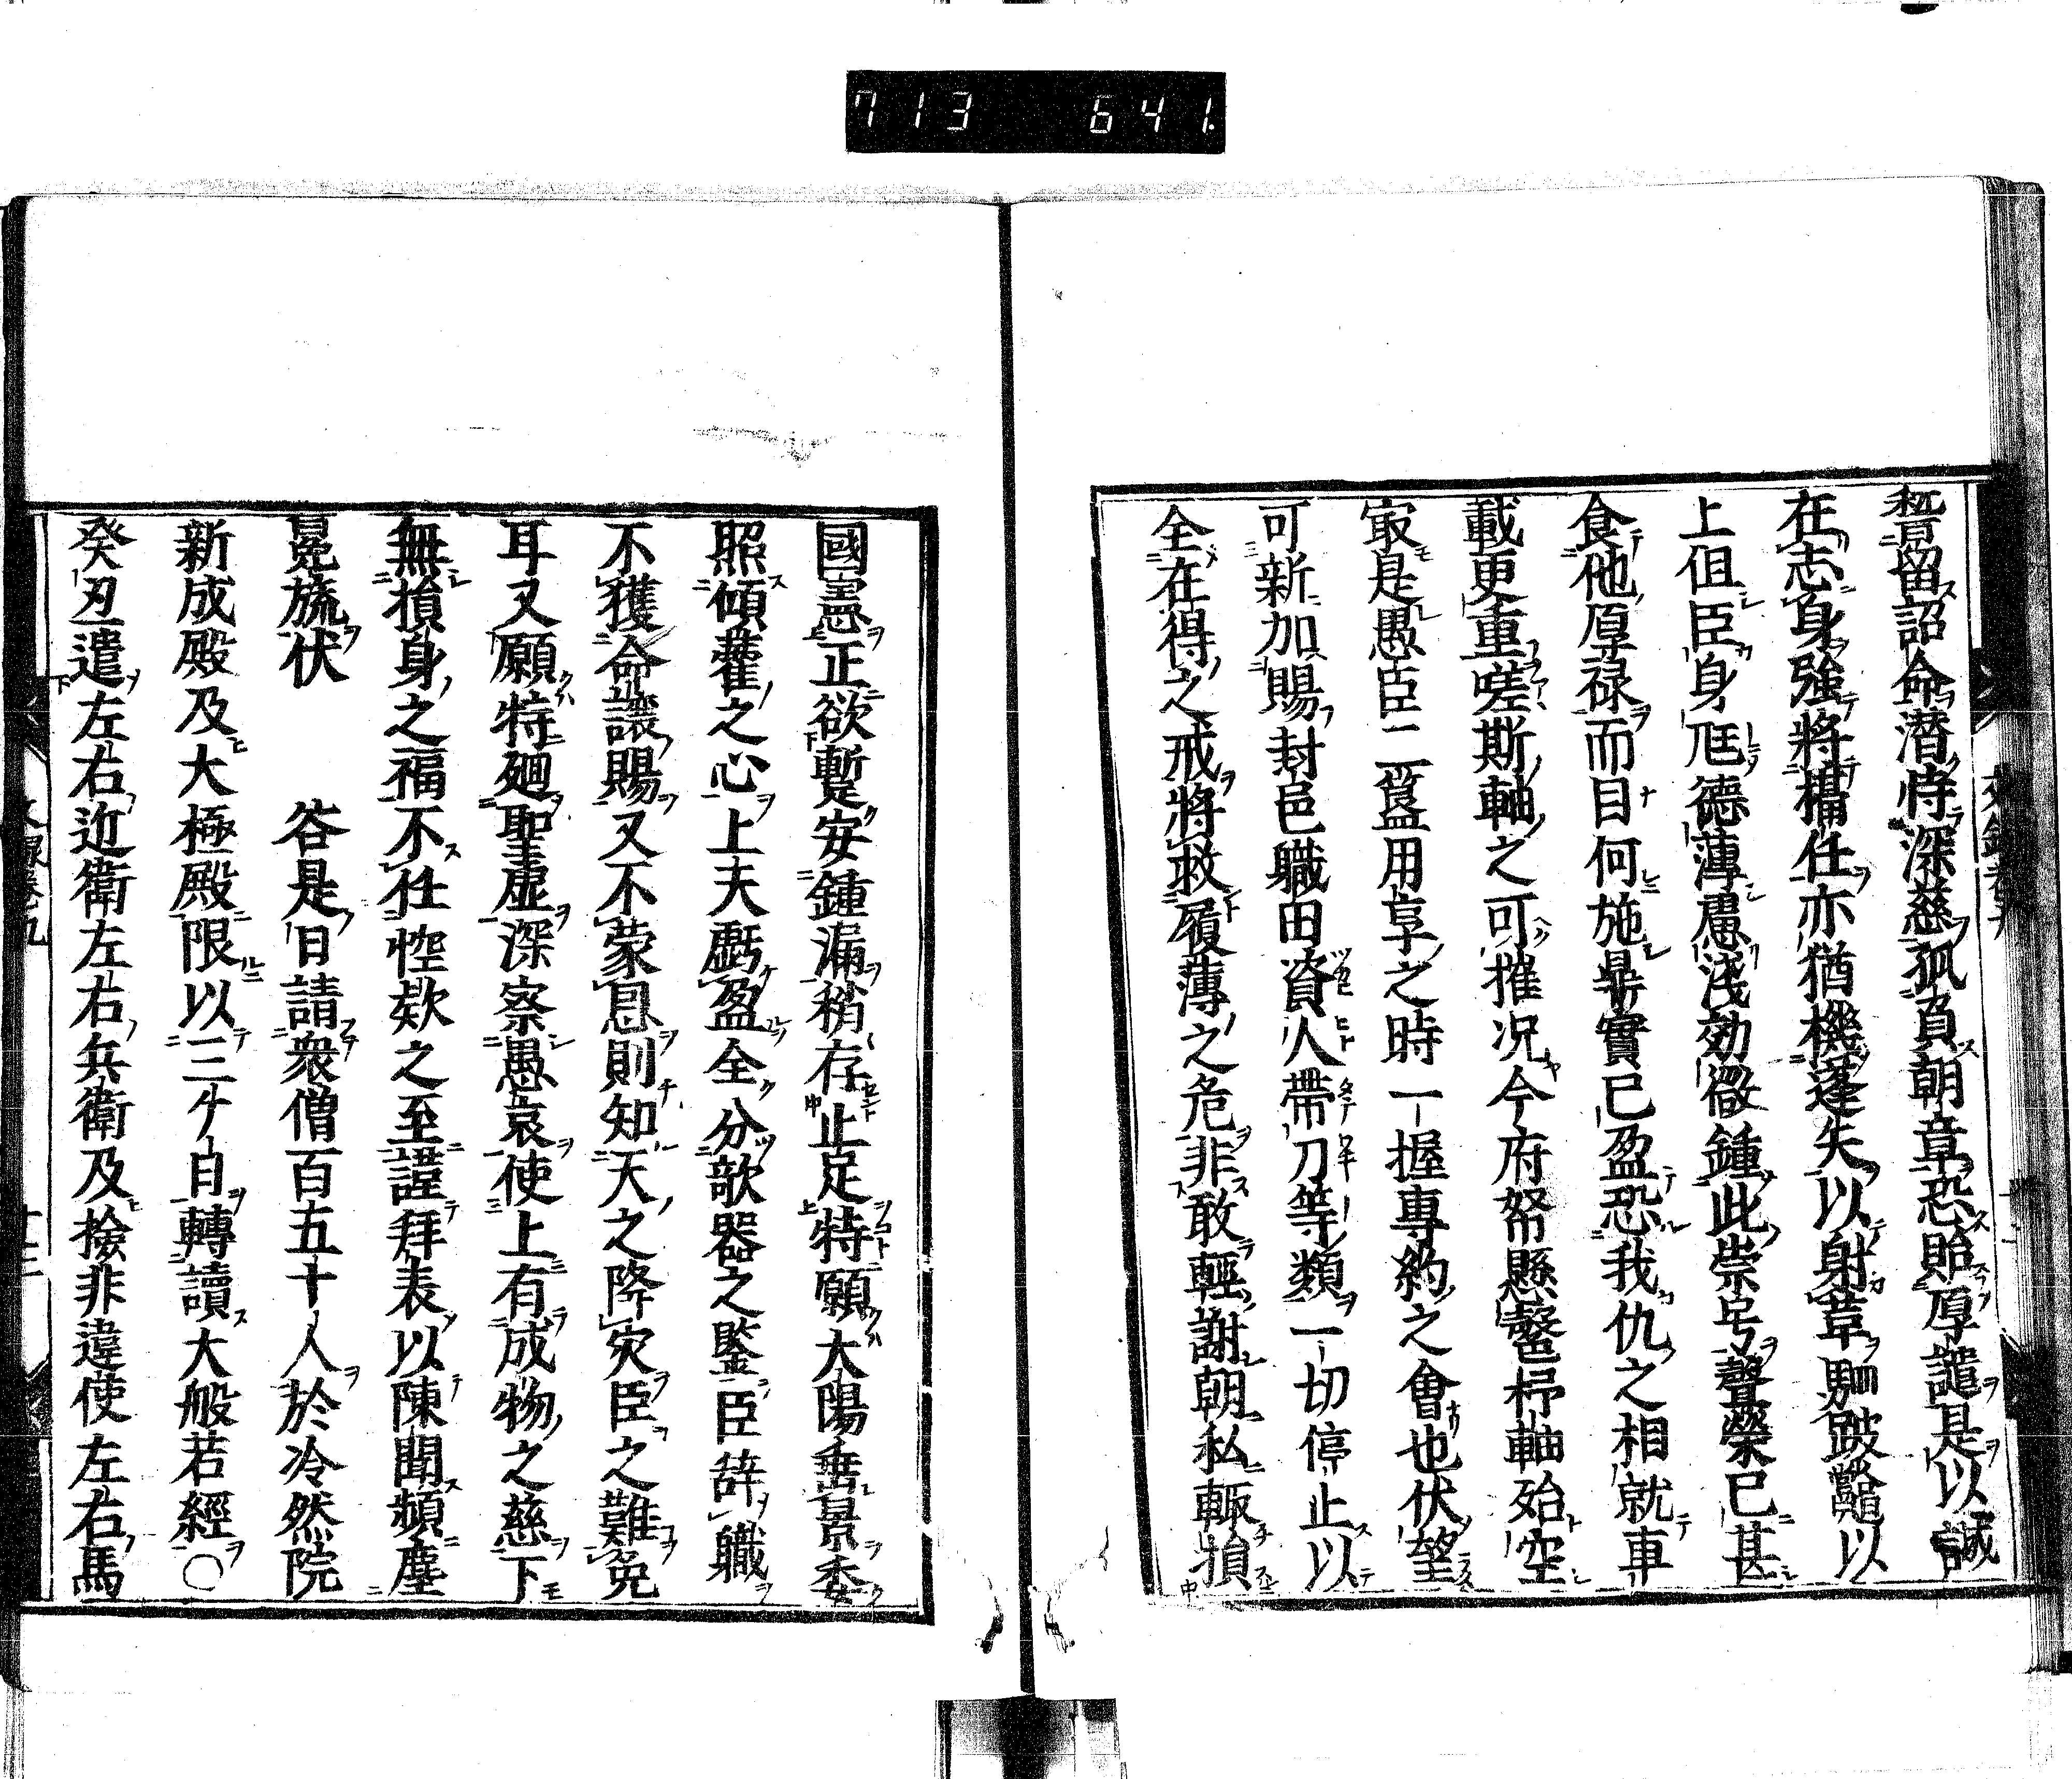 713 641.
嵆留詔命潜恃深慈孤負朝章恐貽厚譴是以誠
在志身強將櫹任亦猶機蓬矢以射葦駟跛鼈以
上但臣身尫德薄慮淺効微鍾此崇号聲榮已甚
食他厚禄而目何施鼎實已盈恐我仇之相就車
載更重嗟斯軸之可摧况今府帑懸罄杼軸殆空
寂是愚臣二簋用享之時一握專約之會也伏望
可新加賜封邑職田資人帶刀等類一切停止以
全在得之戒將救履薄之危非敢輕謝朝私輙損
國憲正欲暫安鍾漏稍存止足特願大陽垂景委
照傾藿之心上天虧盈全分欹器之鑒臣辞職
不獲命讓賜又不蒙恩則知天之降灾臣之難免
耳又願特廻聖虚深察愚哀使上有成物之慈下
無損身之福不任悾欵之至謹拜表以陳聞頻塵
冕旒伏 荅是日請衆僧百五十人於冷然院
新成殿及大極殿限以三ケ日轉讀大般若經○
癸丑遣左右近衛左右兵衛及撿非違使左右馬